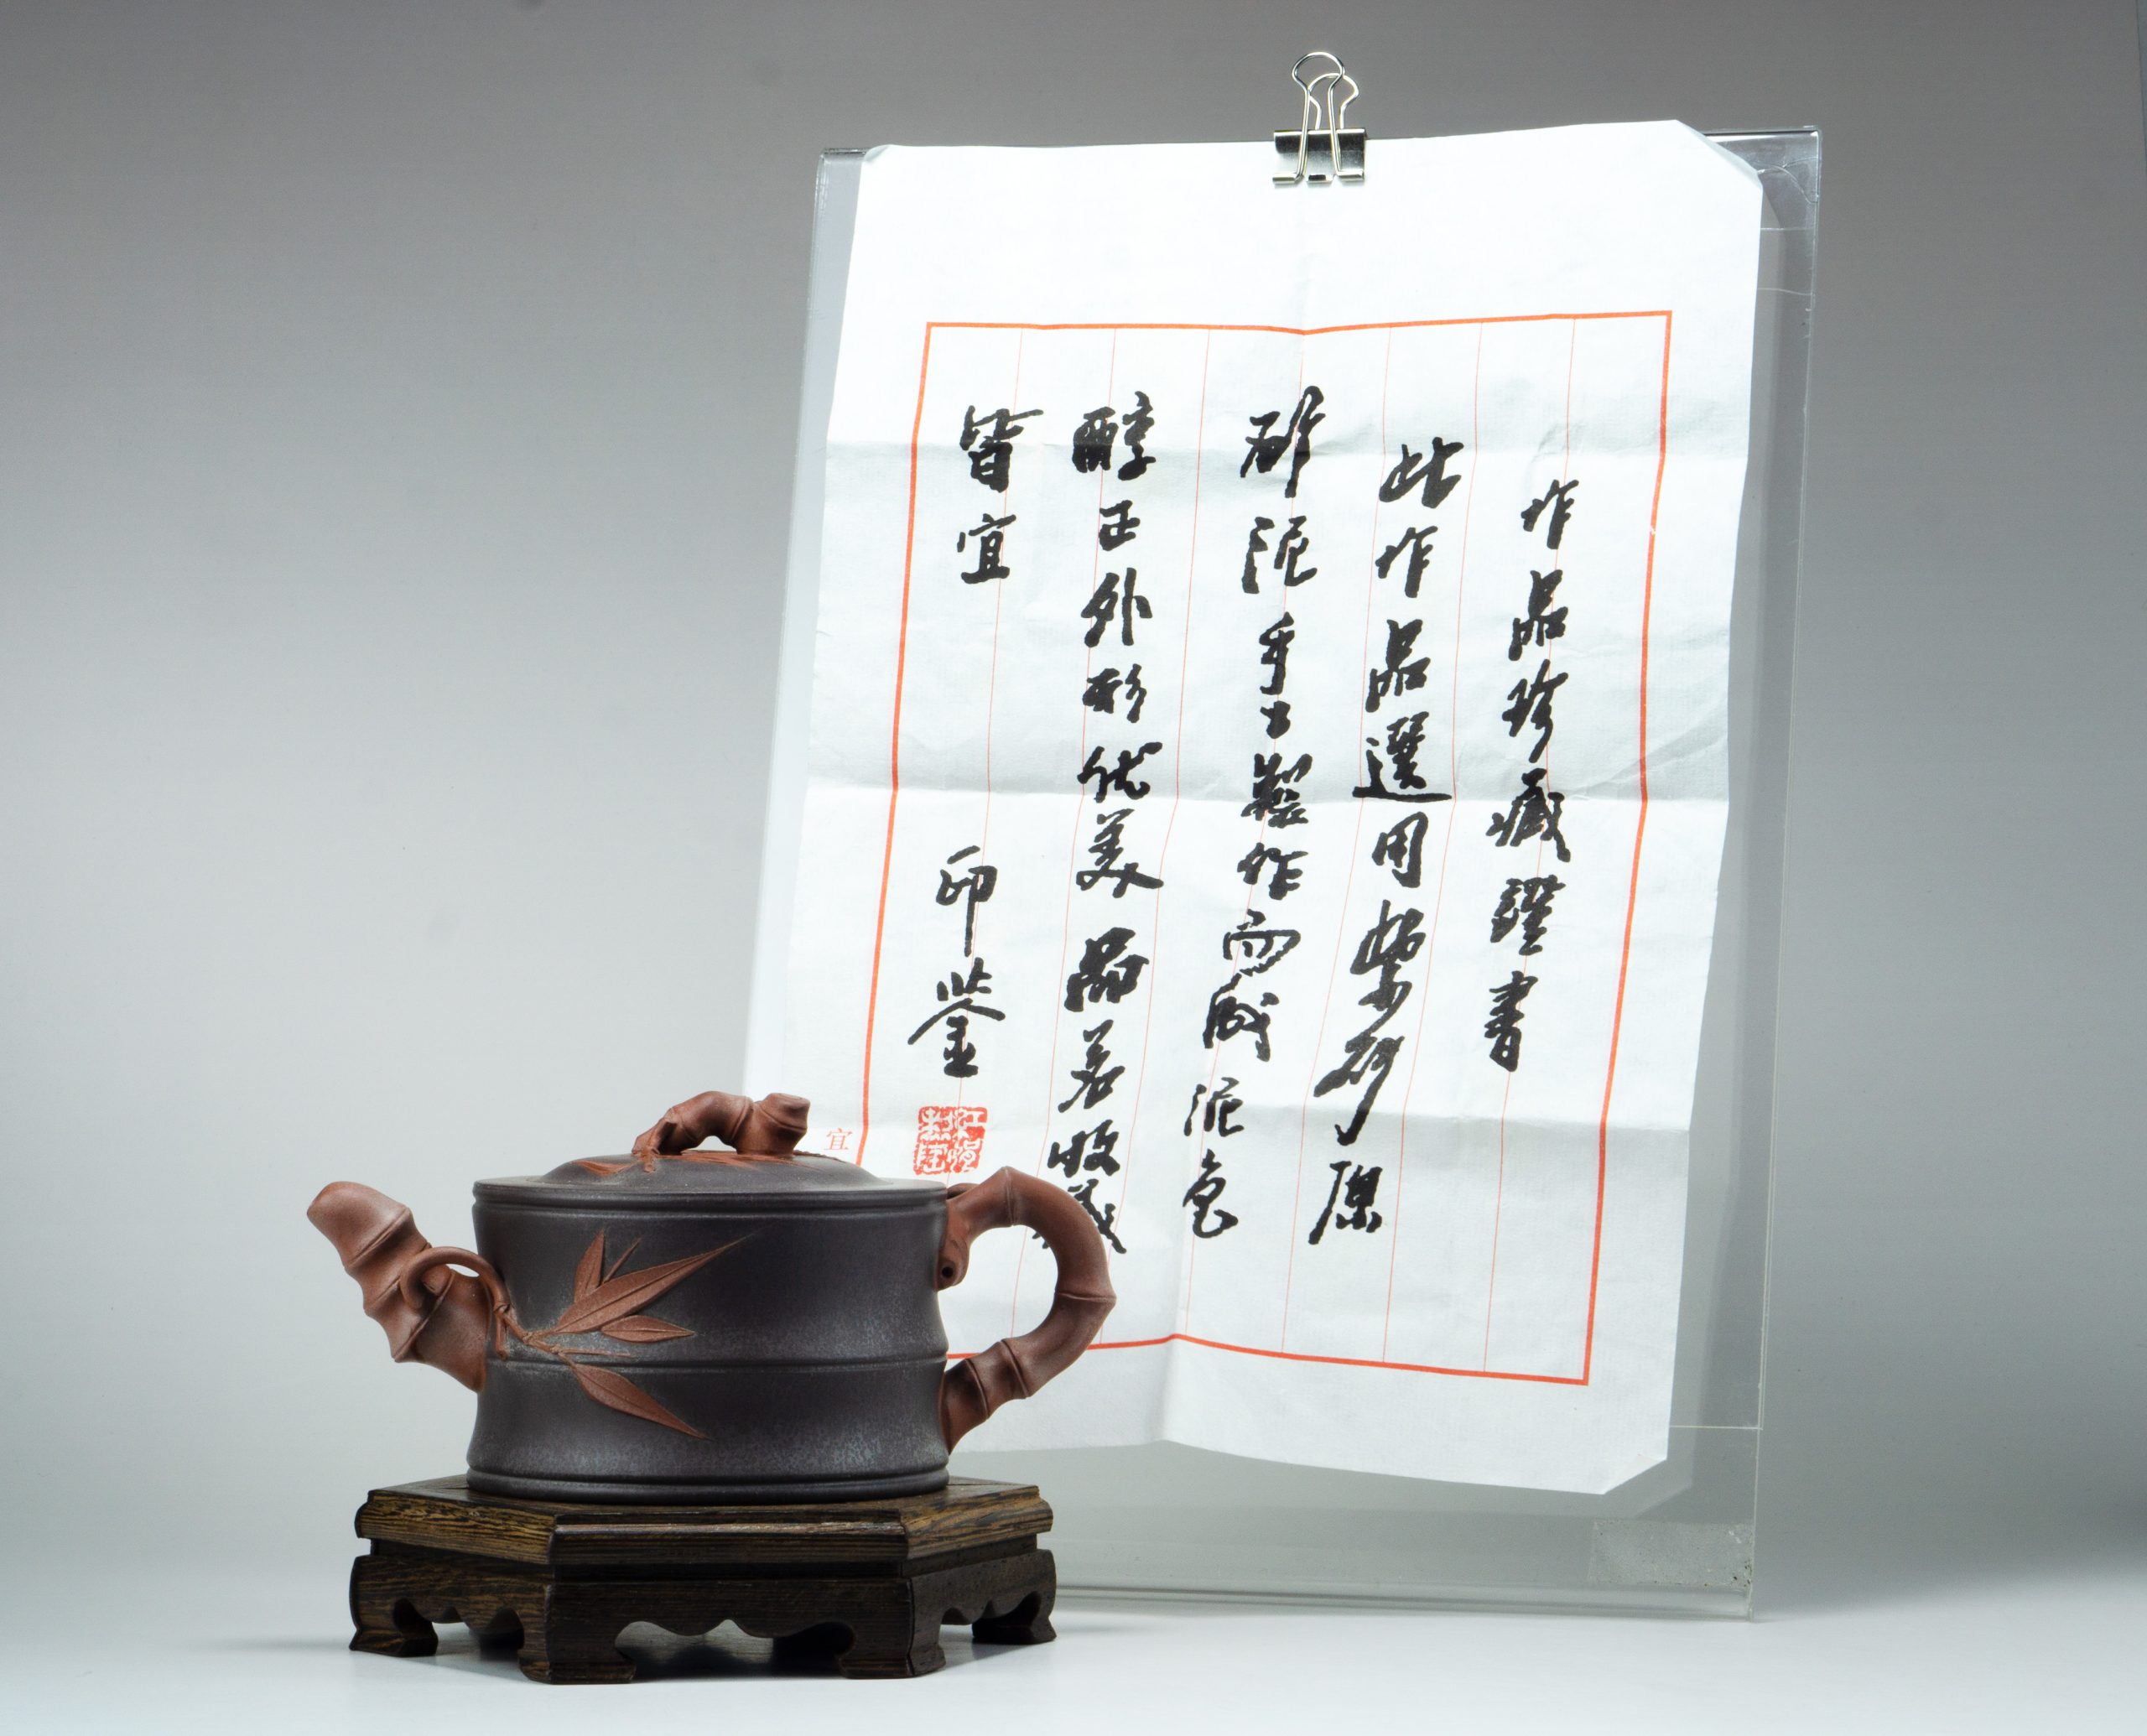 作品珍藏證書
此作品選用紫砂原
矿泥手工製作而成泥色
醇正外形优美品茗收藏
皆宜
印鉴
宜